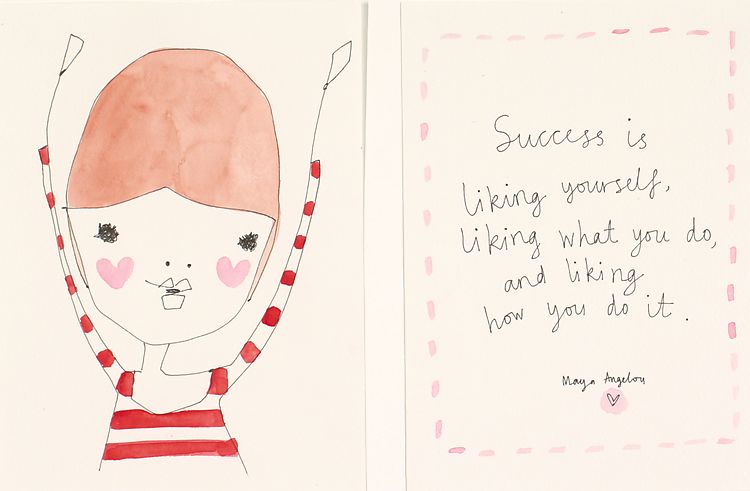 Success is
liking yourself,
liking what you do,
and liking
how you do it.
Maya Angelou